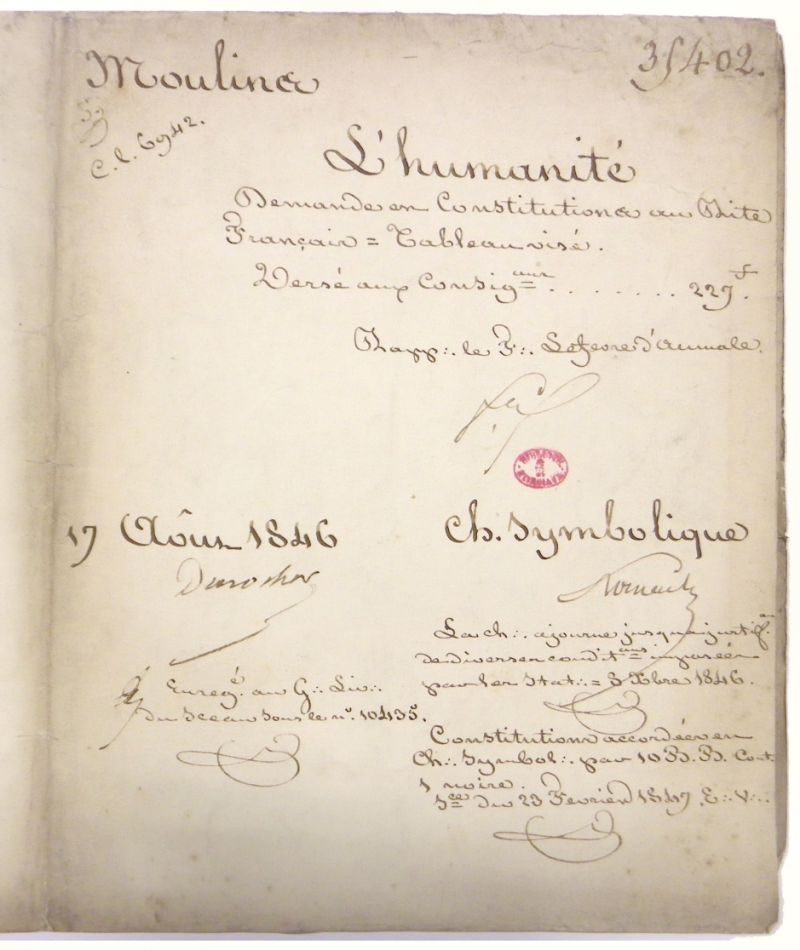 Moulins
35402.
C. l. 6942.
L'humanité
Demande en Constitutions au Rite
Français = Tableau visé.
Versé aux Consig.ons . . . . . . . 227f.
Rapp∴ le F∴ Lefevre d'Aumale.
17 Août 1846
Ch. Symbolique
La ch∴ ajourne jusqu'a justif.on
de diverses condit.ons imposées
par les Stat∴ = 3 Xbre 1846.
Enregé. au G∴ Liv∴
du Sceau sous le n°. 10435.
Constitutions accordées en
Ch∴ Symbol∴ par 10 B. B. Cont.
1 noire.
Sce du 23 Fevrier 1847 E∴ V∴